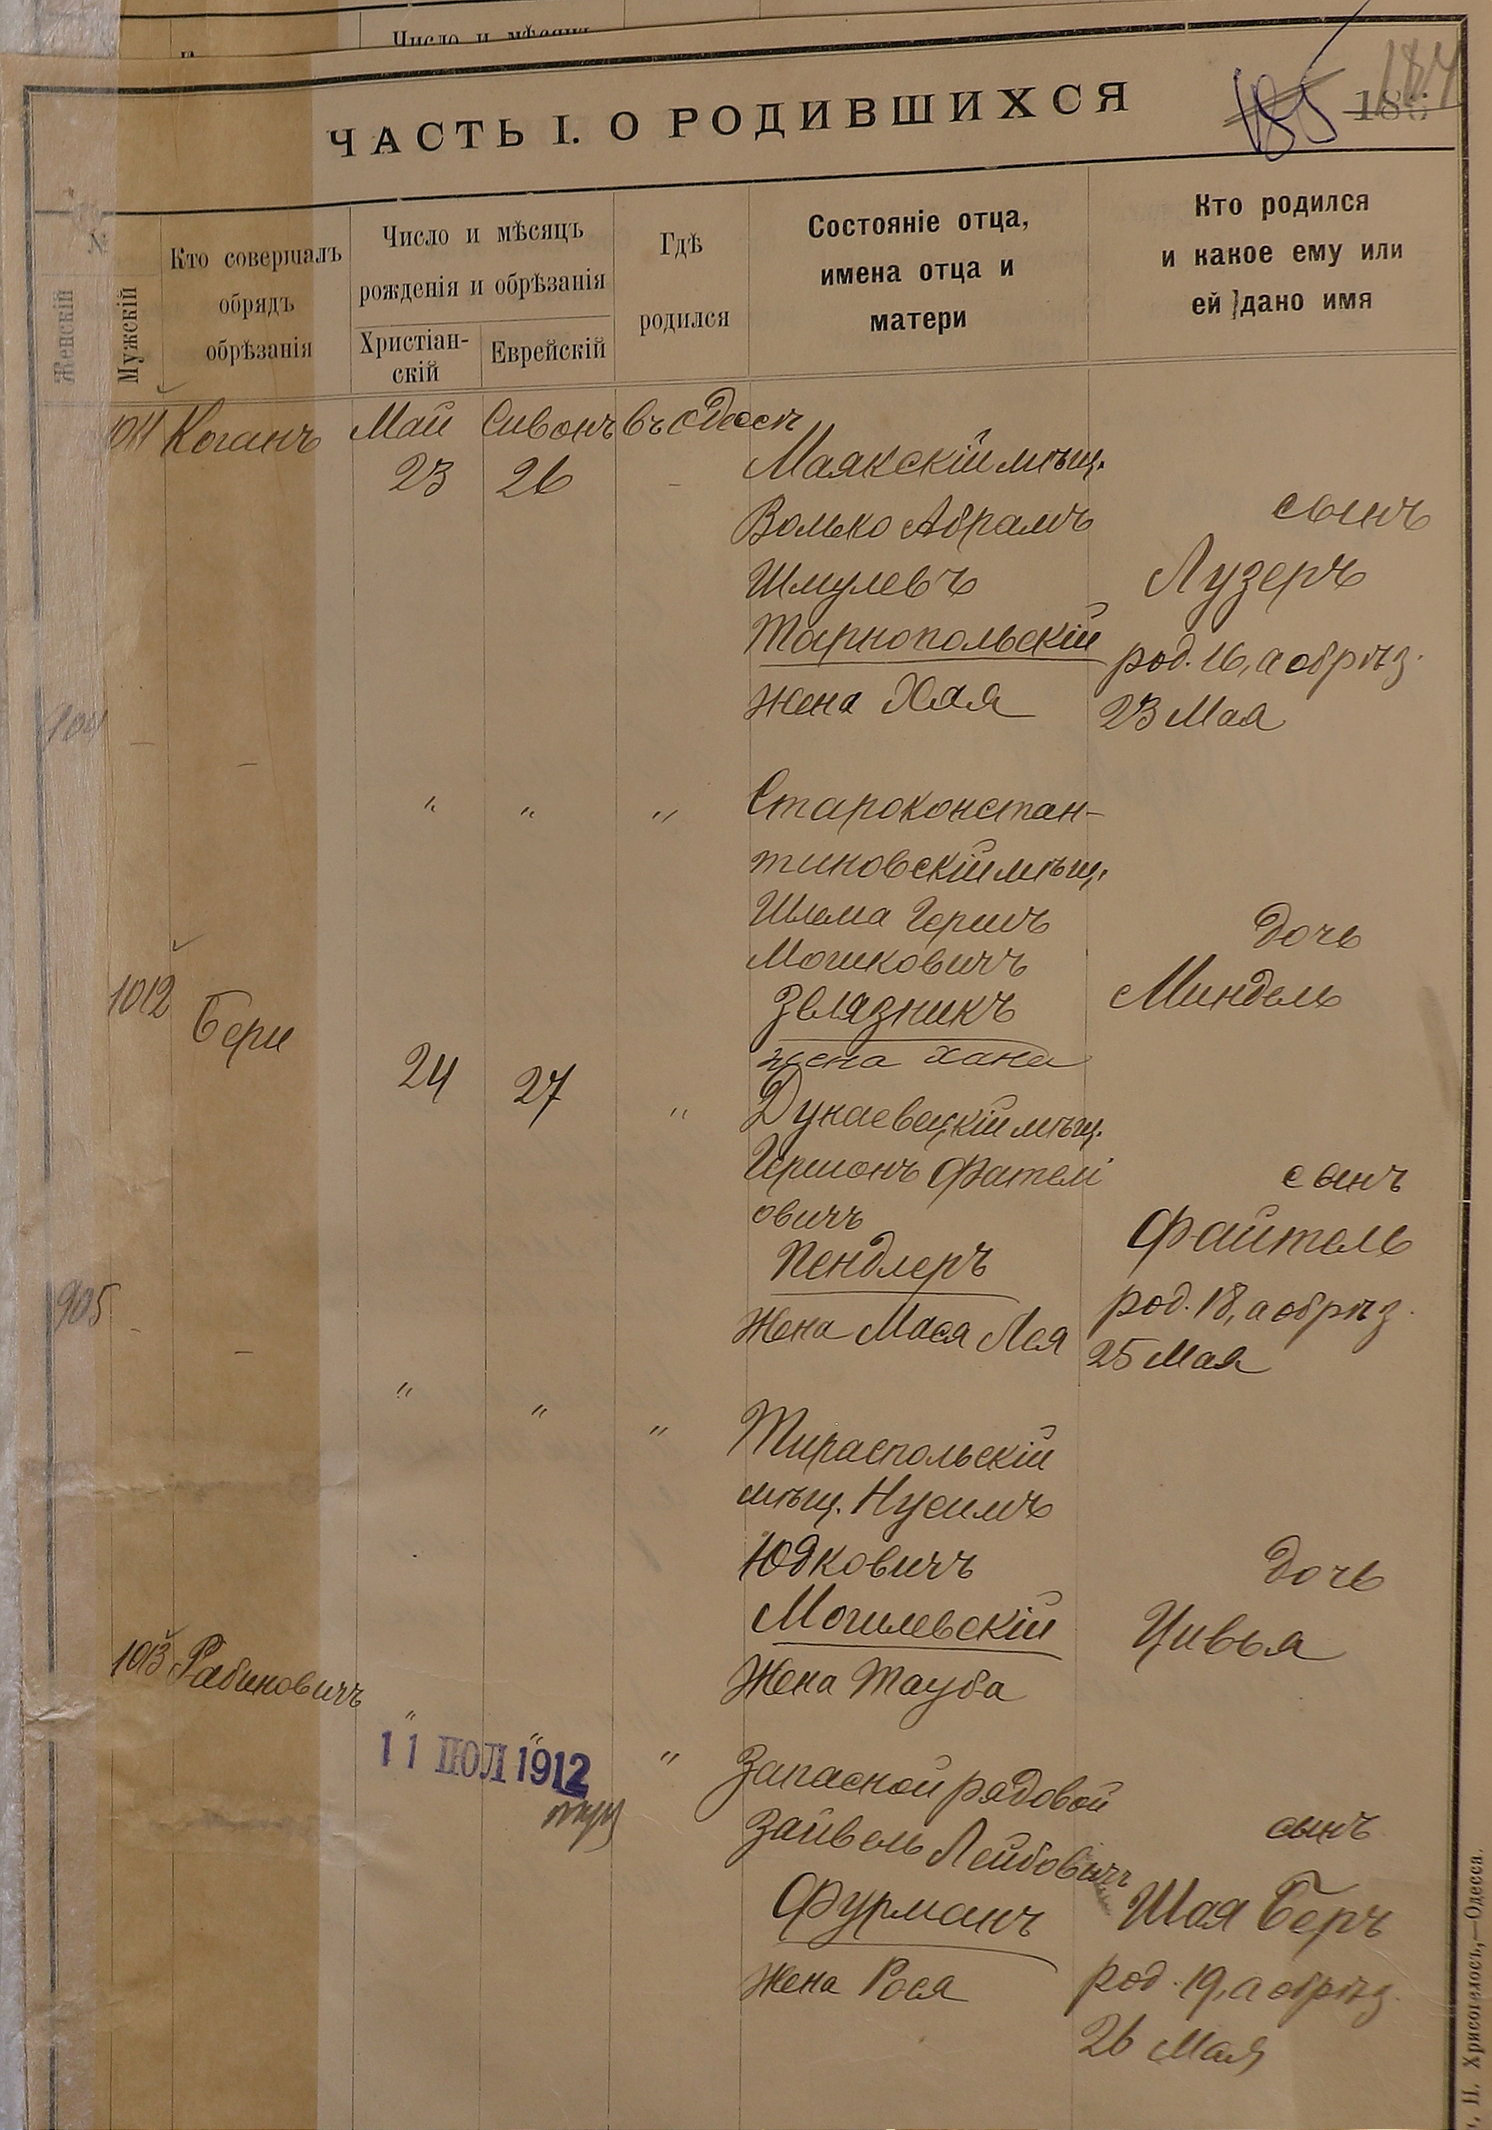 Число и мѣсяцъ
ЧАСТЬ I. О РОДИВШИХСЯ
185 184
№
Женскій
Мужскій
Кто совершалъ
обрядъ
обрѣзанія
Число и мѣсяцъ
рожденія и обрѣзанія
Христіан-
скій
Еврейскій
Гдѣ
родился
Состояніе отца,
имена отца и
матери
Кто родился
и какое ему или
ей дано имя
1011 Коганъ Май Сивонъ въ Одессѣ
23 26
Маякскій мѣщ.
Волько Абрамъ
Шмулевъ
Тарнопольскій
жена Хая
сынъ
Лузеръ
род. 16, а обрѣз.
23 Мая
904 — —
" " "
Староконстан-
тиновскій мѣщ.
Шлема Гершъ
Мошковичъ
Звязникъ
жена Хана
дочь
Миндель
1012 Бери
24 27 "
Дунаевецкій мѣщ.
Гершонъ Фател
овичъ
Пендлеръ
жена Мася Лея
сынъ
Файтель
род. 18, а обрѣз.
25 Мая
905 — —
" " "
Тираспольскій
мѣщ. Нусимъ
Юдковичъ
Могилевскій
жена Тауба
дочь
Цивья
1013 Рабиновичъ
" " "
11 ІЮЛ 1912
Запасной рядовой
Зайвель Лейбовичъ
Фурманъ
жена Рося
сынъ
Шая Беръ
род. 19, а обрѣз.
26 Мая
Н. Хрисогелосъ,—Одесса.